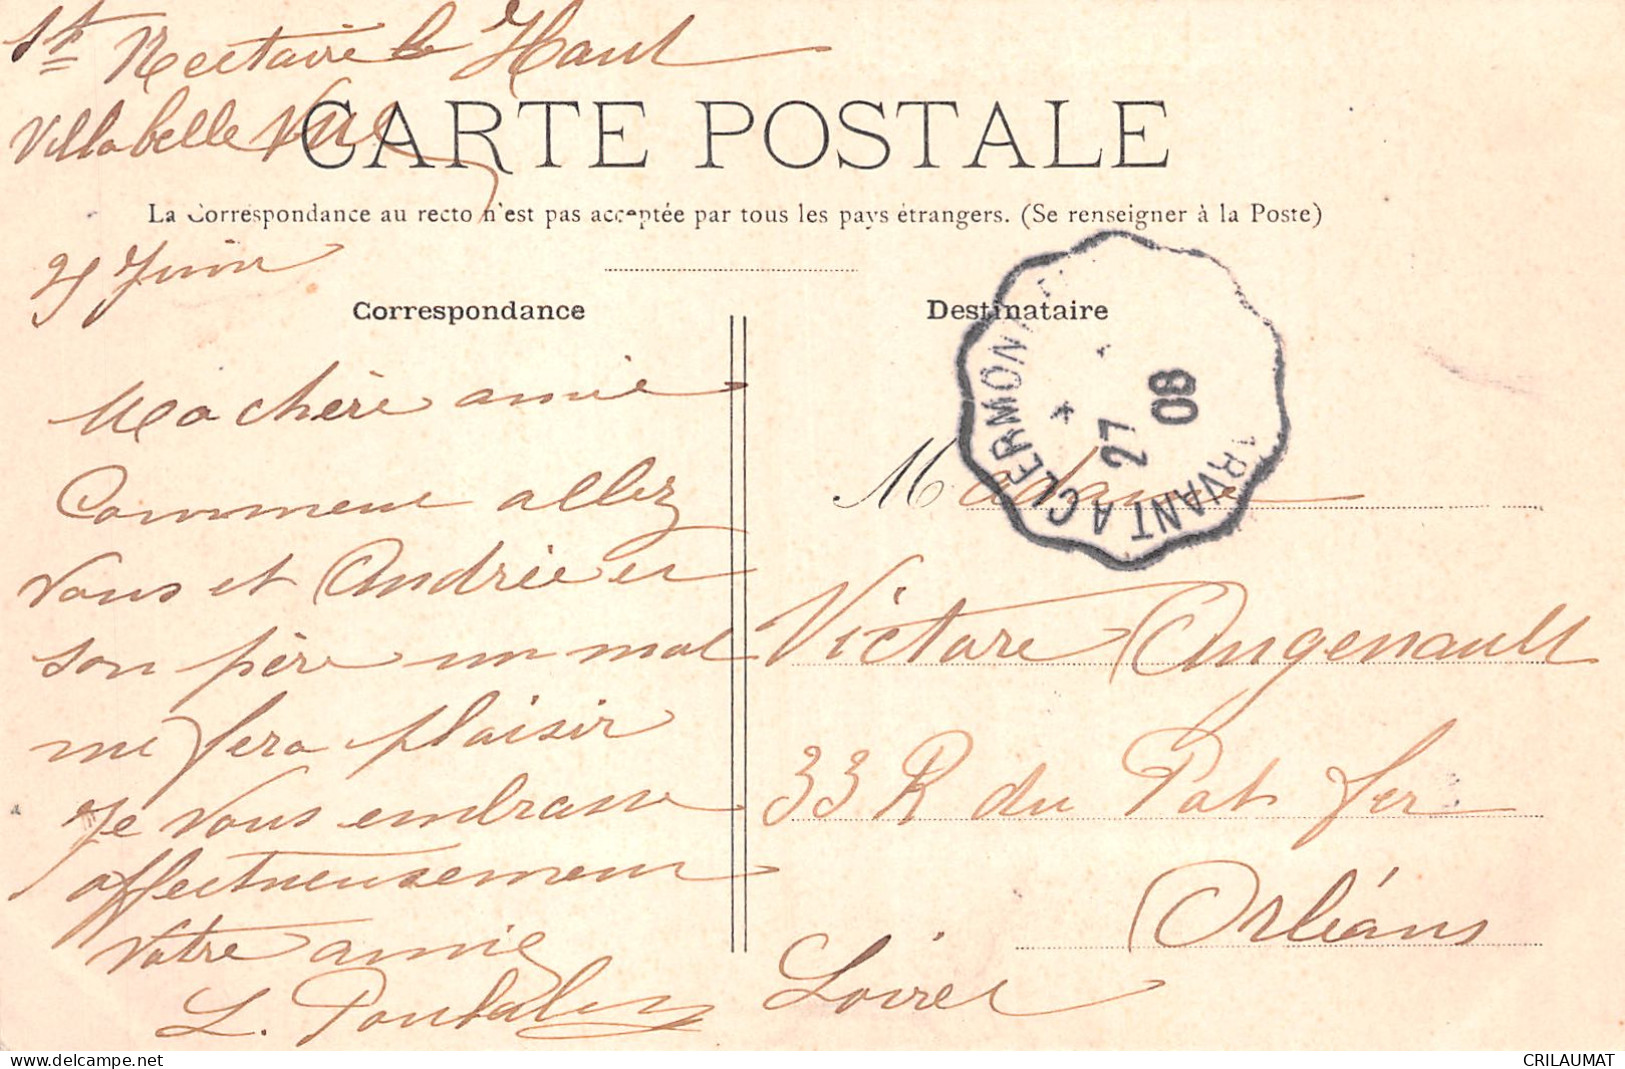 St Nectaire le Haut
Villa belle Vue
CARTE POSTALE
La Correspondance au recto n'est pas acceptée par tous les pays étrangers. (Se renseigner à la Poste)
Juin
Correspondance
Destinataire
Ma chère amie
Comment allez
vous et Andrée et
son père un mot
me fera plaisir
Je vous embrasse
affectueusement
Votre amie
L.
ARVANT A CLERMONT
27
08
Madame
Victore Angenault
33 R du Pot fer
Orléans
Loiret
delcampe.net
CRILAUMAT